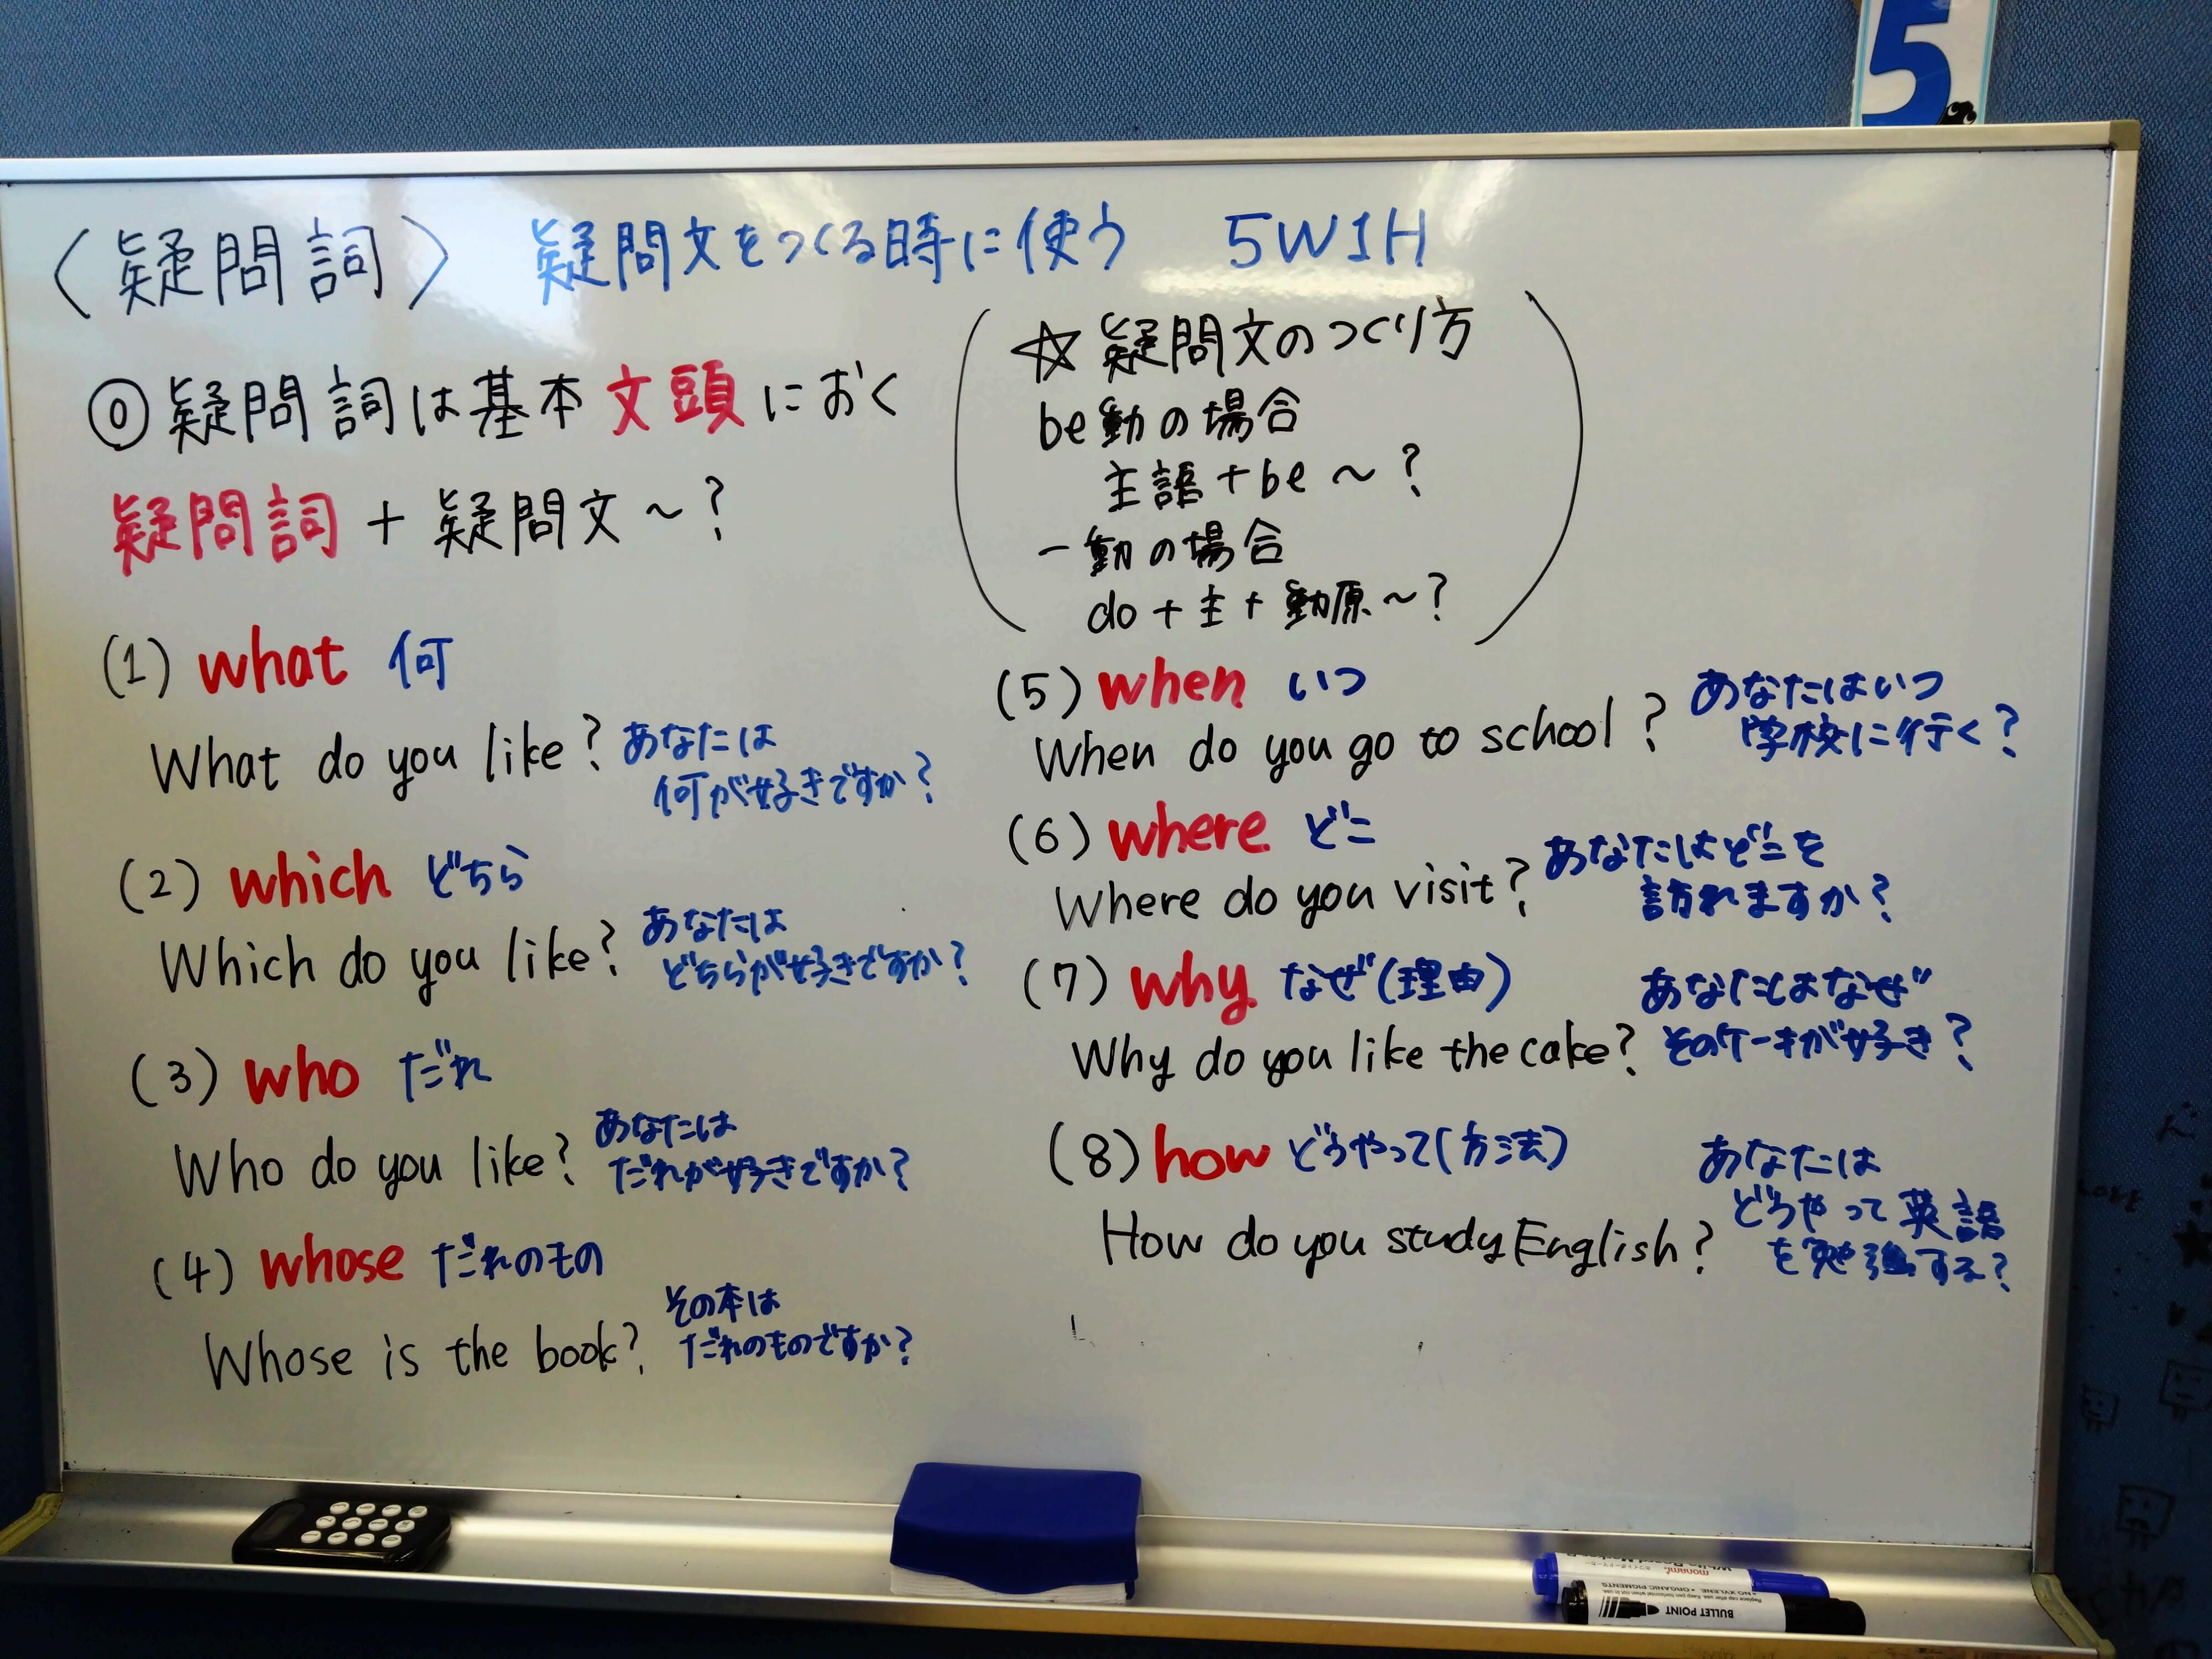 5
〈疑問詞〉 疑問文をつくる時に使う 5W1H
◎疑問詞は基本文頭におく
疑問詞 + 疑問文 ~ ?
☆疑問文のつくり方
be動の場合
主語 + be ~ ?
一動の場合
do + 主 + 動原 ~ ?
(1) what 何
What do you like? あなたは
何が好きですか?
(2) which どちら
Which do you like? あなたは
どちらが好きですか?
(3) who だれ
Who do you like? あなたは
だれが好きですか?
(4) whose だれのもの
Whose is the book? その本は
だれのものですか?
(5) when いつ
When do you go to school? あなたはいつ
学校に行く?
(6) where どこ
Where do you visit? あなたはどこを
訪れますか?
(7) why なぜ(理由)
Why do you like the cake? あなたはなぜ
そのケーキが好き?
(8) how どうやって(方法)
How do you study English? あなたは
どうやって英語
を勉強する?
monami
• NO XYLENE • ORGANIC PIGMENTS
BULLET POINT